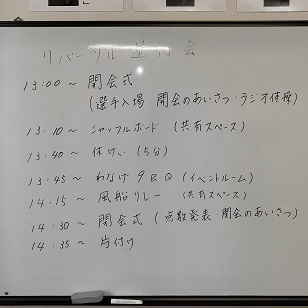 リバーサル 運動会
13:00～ 開会式
(選手入場 開会のあいさつ・ラジオ体操)
13:10～ シャッフルボード (共有スペース)
13:40～ 休けい (5分)
13:45～ わなげ (イベントルーム)
14:15～ 風船リレー (共有スペース)
14:30～ 閉会式 (点数発表・閉会のあいさつ)
14:35～ 片付け